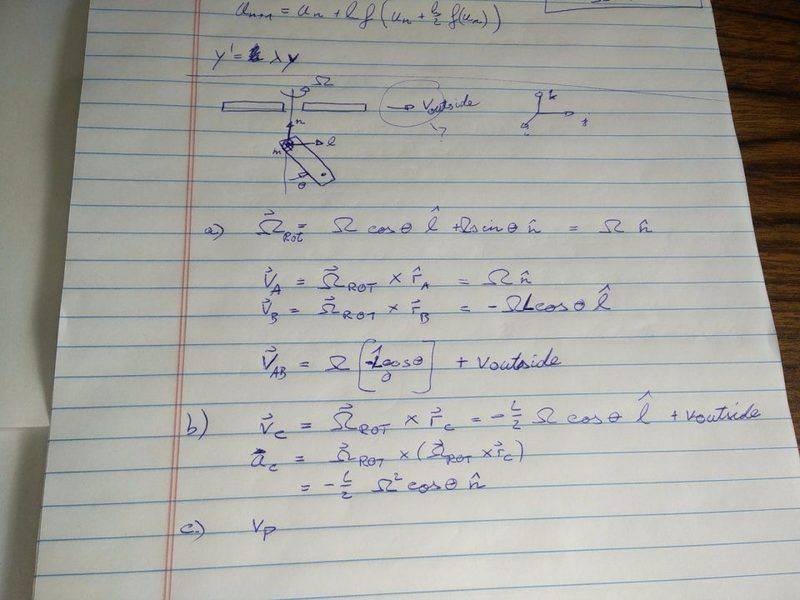 uₙ₊₁ = uₙ + h f(uₙ + h/2 f(uₙ))
y' = λy
Ω
Voutside
?
n
l
m
θ
k
j
i
a) Ω⃗ROT = Ω cosθ l̂ + Ω sinθ n̂ = Ω n̂
V⃗A = Ω⃗ROT × r̂A = Ω n̂
V⃗B = Ω⃗ROT × r⃗B = -ΩLcosθ l̂
V⃗AB = Ω [-Lcosθ 0] + Voutside
b) V⃗C = Ω⃗ROT × r⃗C = -L/2 Ω cosθ l̂ + Voutside
a⃗C = Ω⃗ROT × (Ω⃗ROT × r⃗C)
= -L/2 Ω² cosθ n̂
c.) Vp